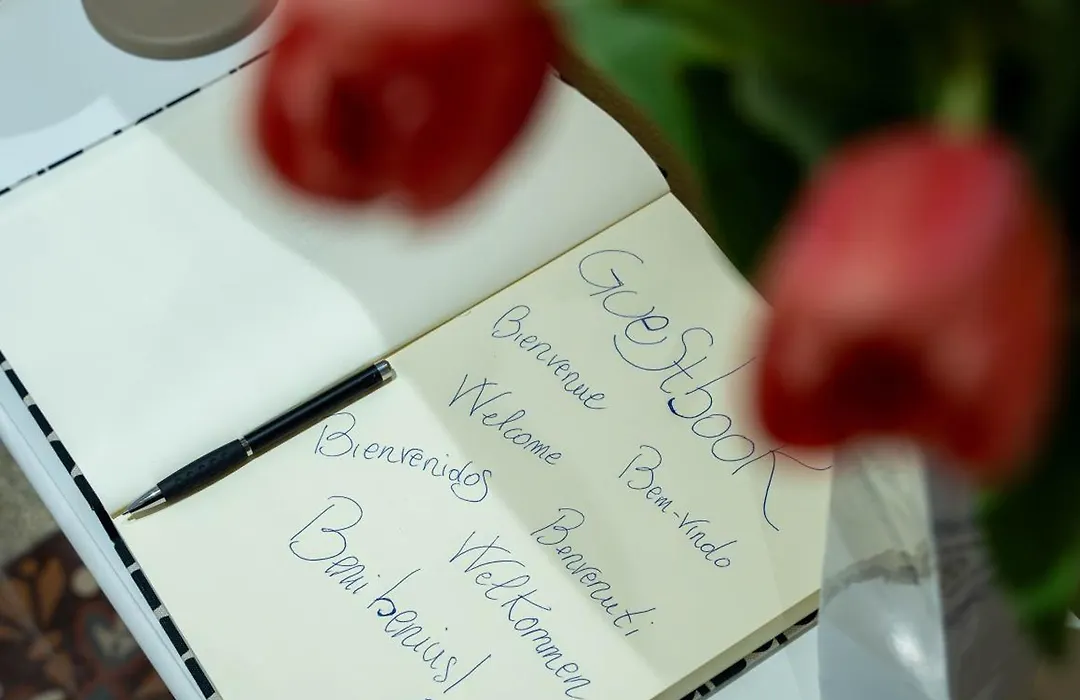 Guestbook
Bienvenue
Welcome
Bem-vindo
Bienvenidos
Benvenuti
Welkommen
Beni benius!